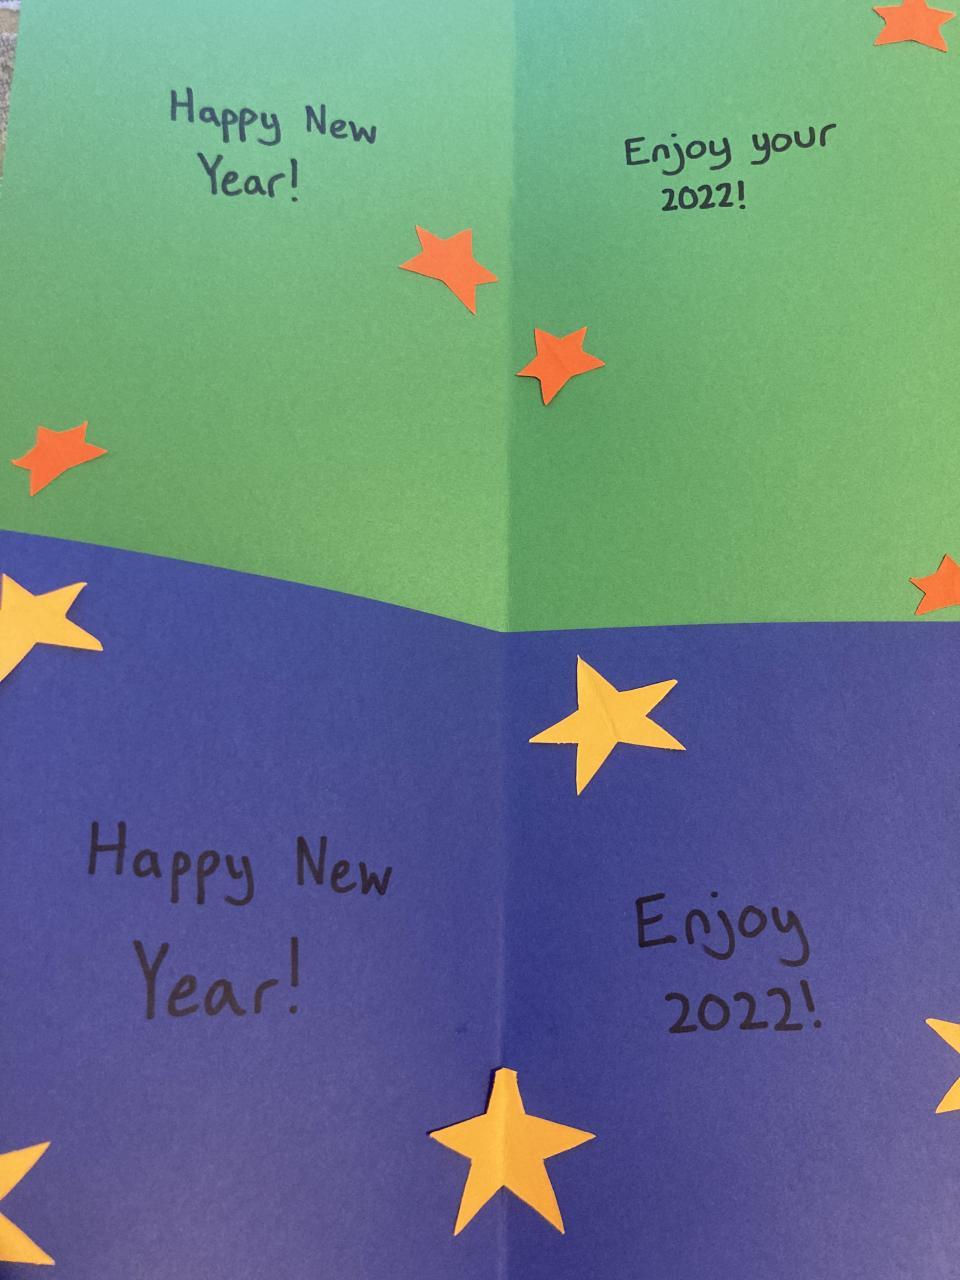 Happy New
Year!
Enjoy your
2022!
Happy New
Year!
Enjoy
2022!